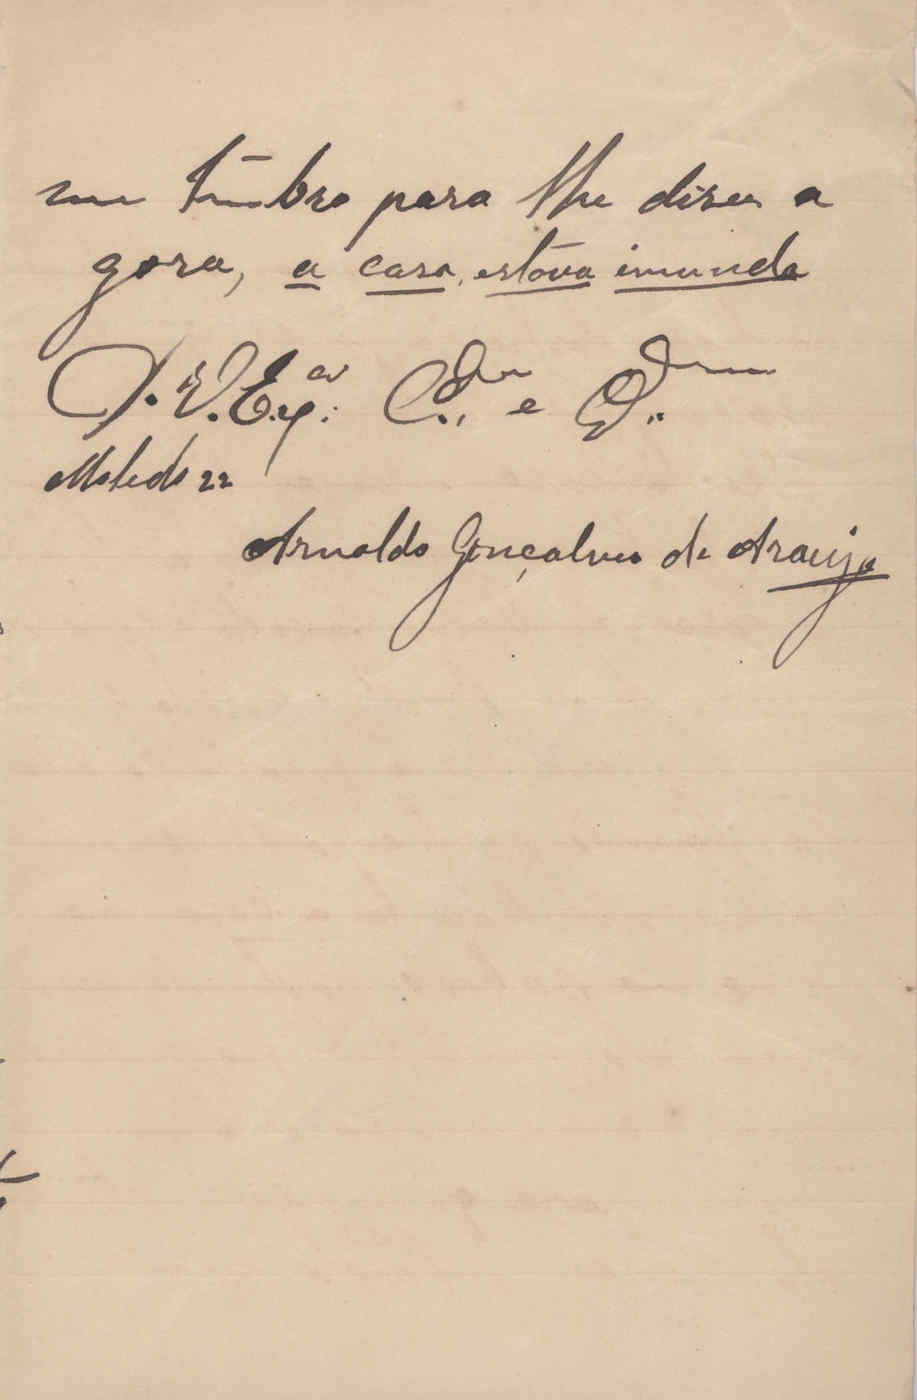 me lembro para lhe dizer a
gora, a casa estáva immunda
D. V. Ex.ª C.do e O.
Moledo 22
Arnaldo Gonçalves de Araujo